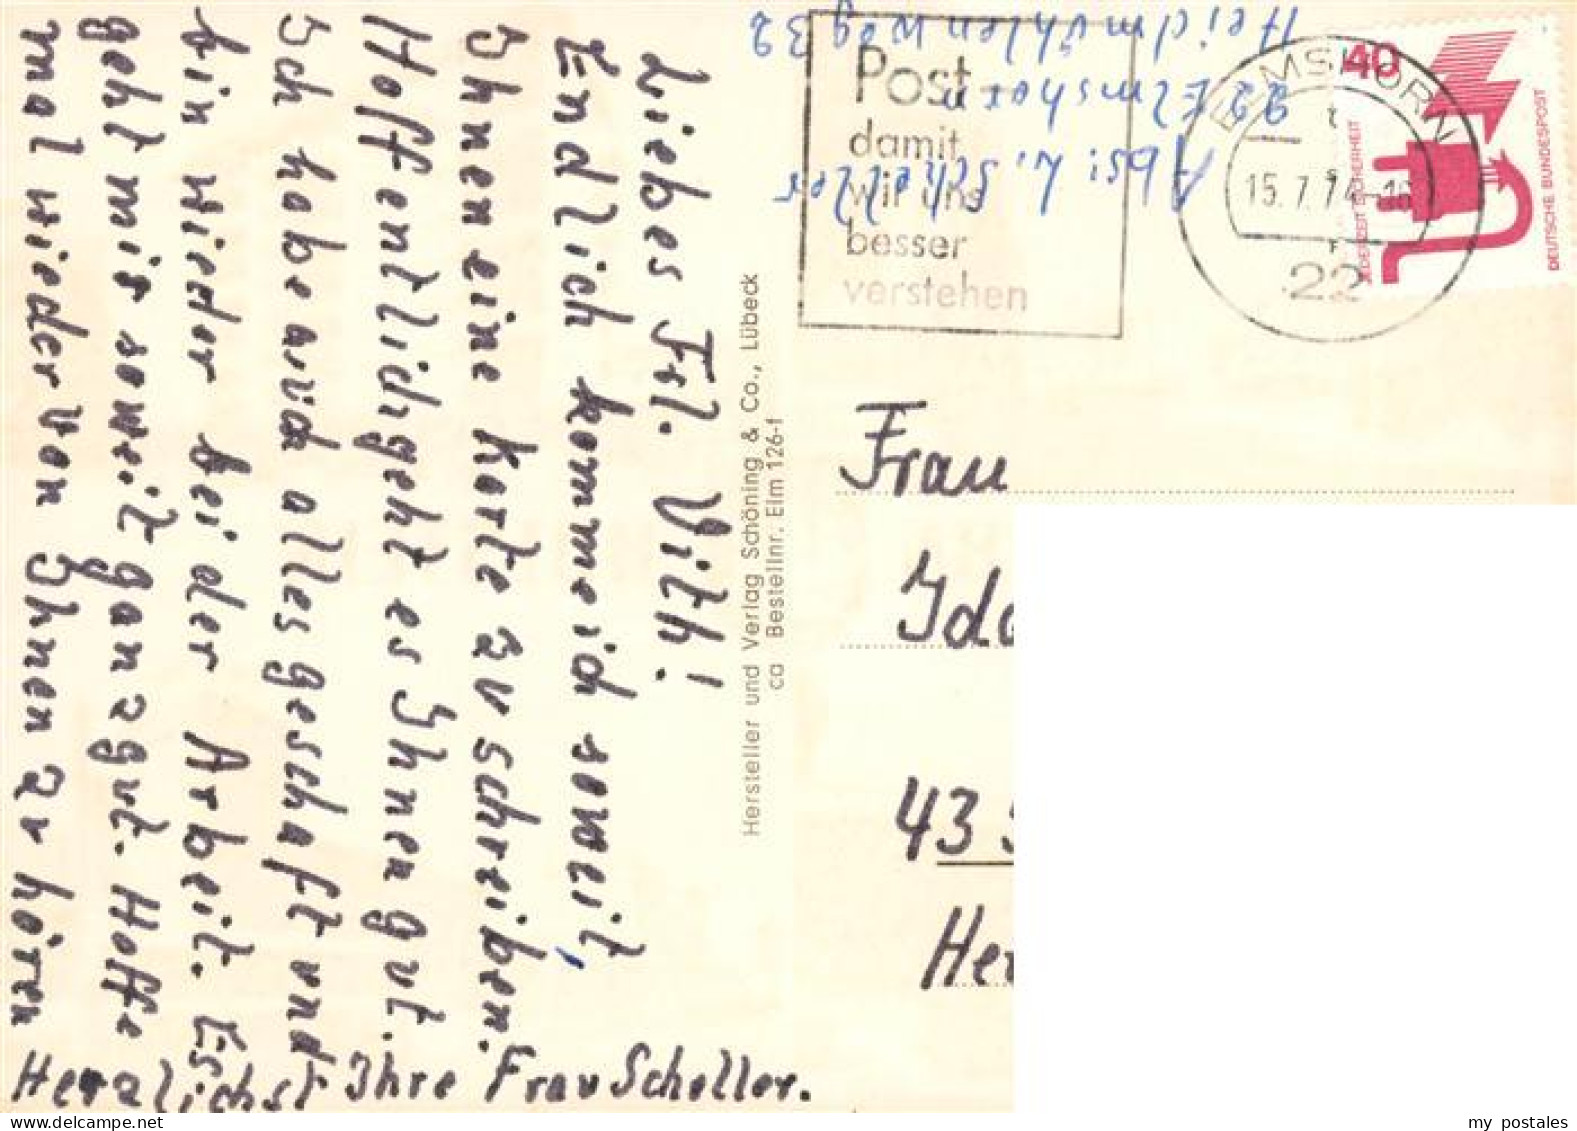 Liebes Frl. Vith!
Endlich komme ich soweit,
Ihnen eine Karte zu schreiben.
Hoffentlich geht es Ihnen gut.
Ich habe auch alles geschaft und
bin wieder bei der Arbeit. Es
geht mir soweit ganz gut. Hoffe
mal wieder von Ihnen zu hören
Herzlichst Ihre Frau Scheller.
Hersteller und Verlag Schöning & Co., Lübeck
ca Bestellnr. Elm 126-f
Abs: L. Scheller
22 Elmshorn
Heidmühlenweg 32
Post-
damit
wir uns
besser
verstehen
ELMSHORN
15.7.74
22
40
JEDERZEIT SICHERHEIT
DEUTSCHE BUNDESPOST
Frau
43
my postales